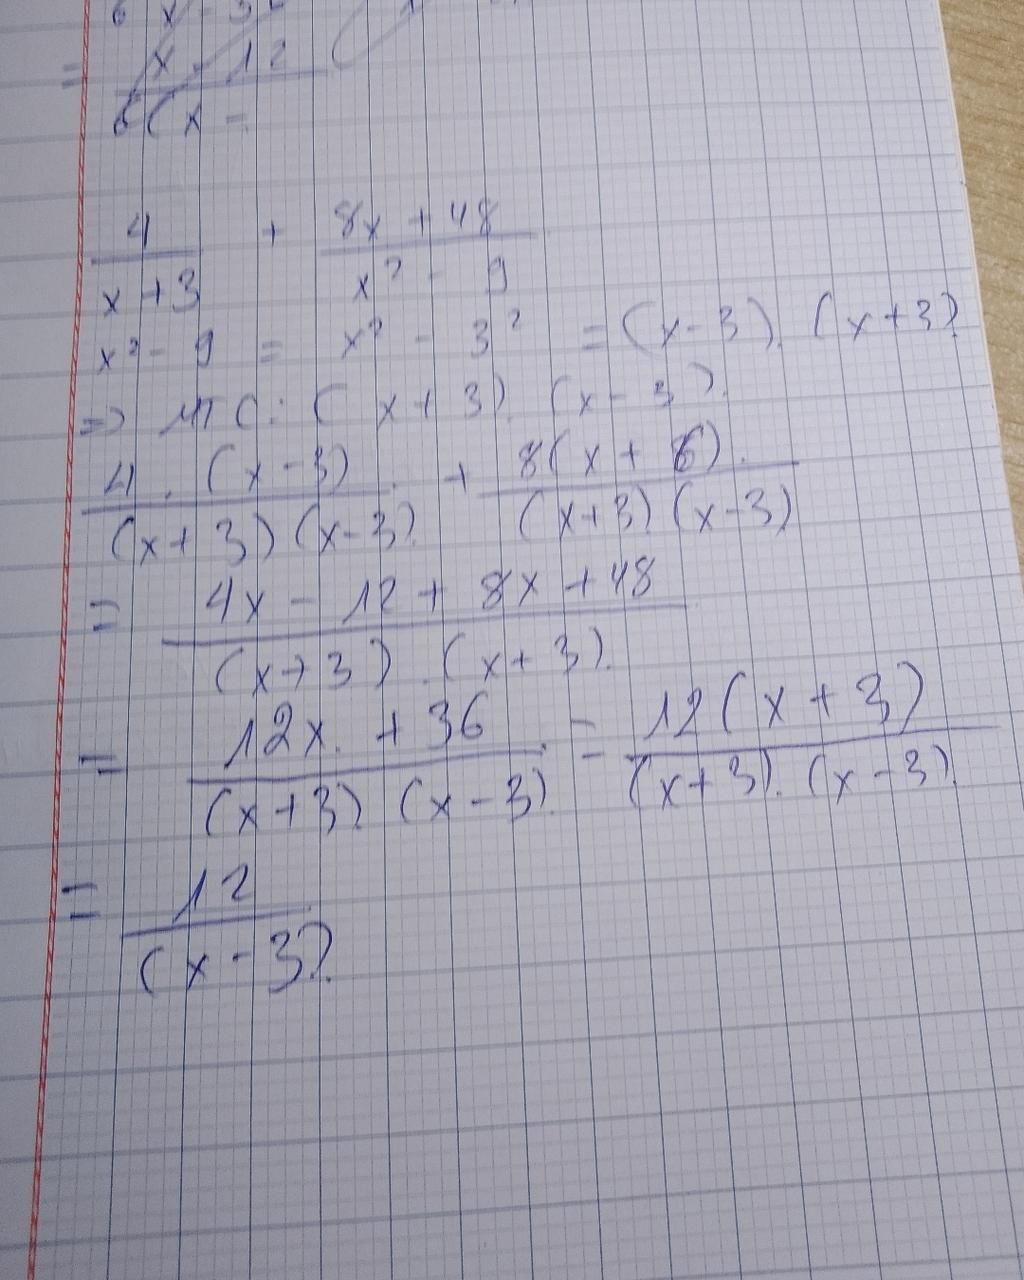 6 x - 3
= x - 12
6(x -
4/(x + 3) + (8x + 48)/(x² - 9)
x² - 9 = x² - 3² = (x - 3).(x + 3)
=> MTC: (x + 3).(x - 3).
4.(x - 3)/((x + 3)(x - 3)) + 8(x + 6)/((x + 3)(x - 3))
= (4x - 12 + 8x + 48)/((x + 3).(x + 3))
= (12x + 36)/((x + 3)(x - 3)) = 12(x + 3)/((x + 3).(x - 3))
= 12/(x - 3)